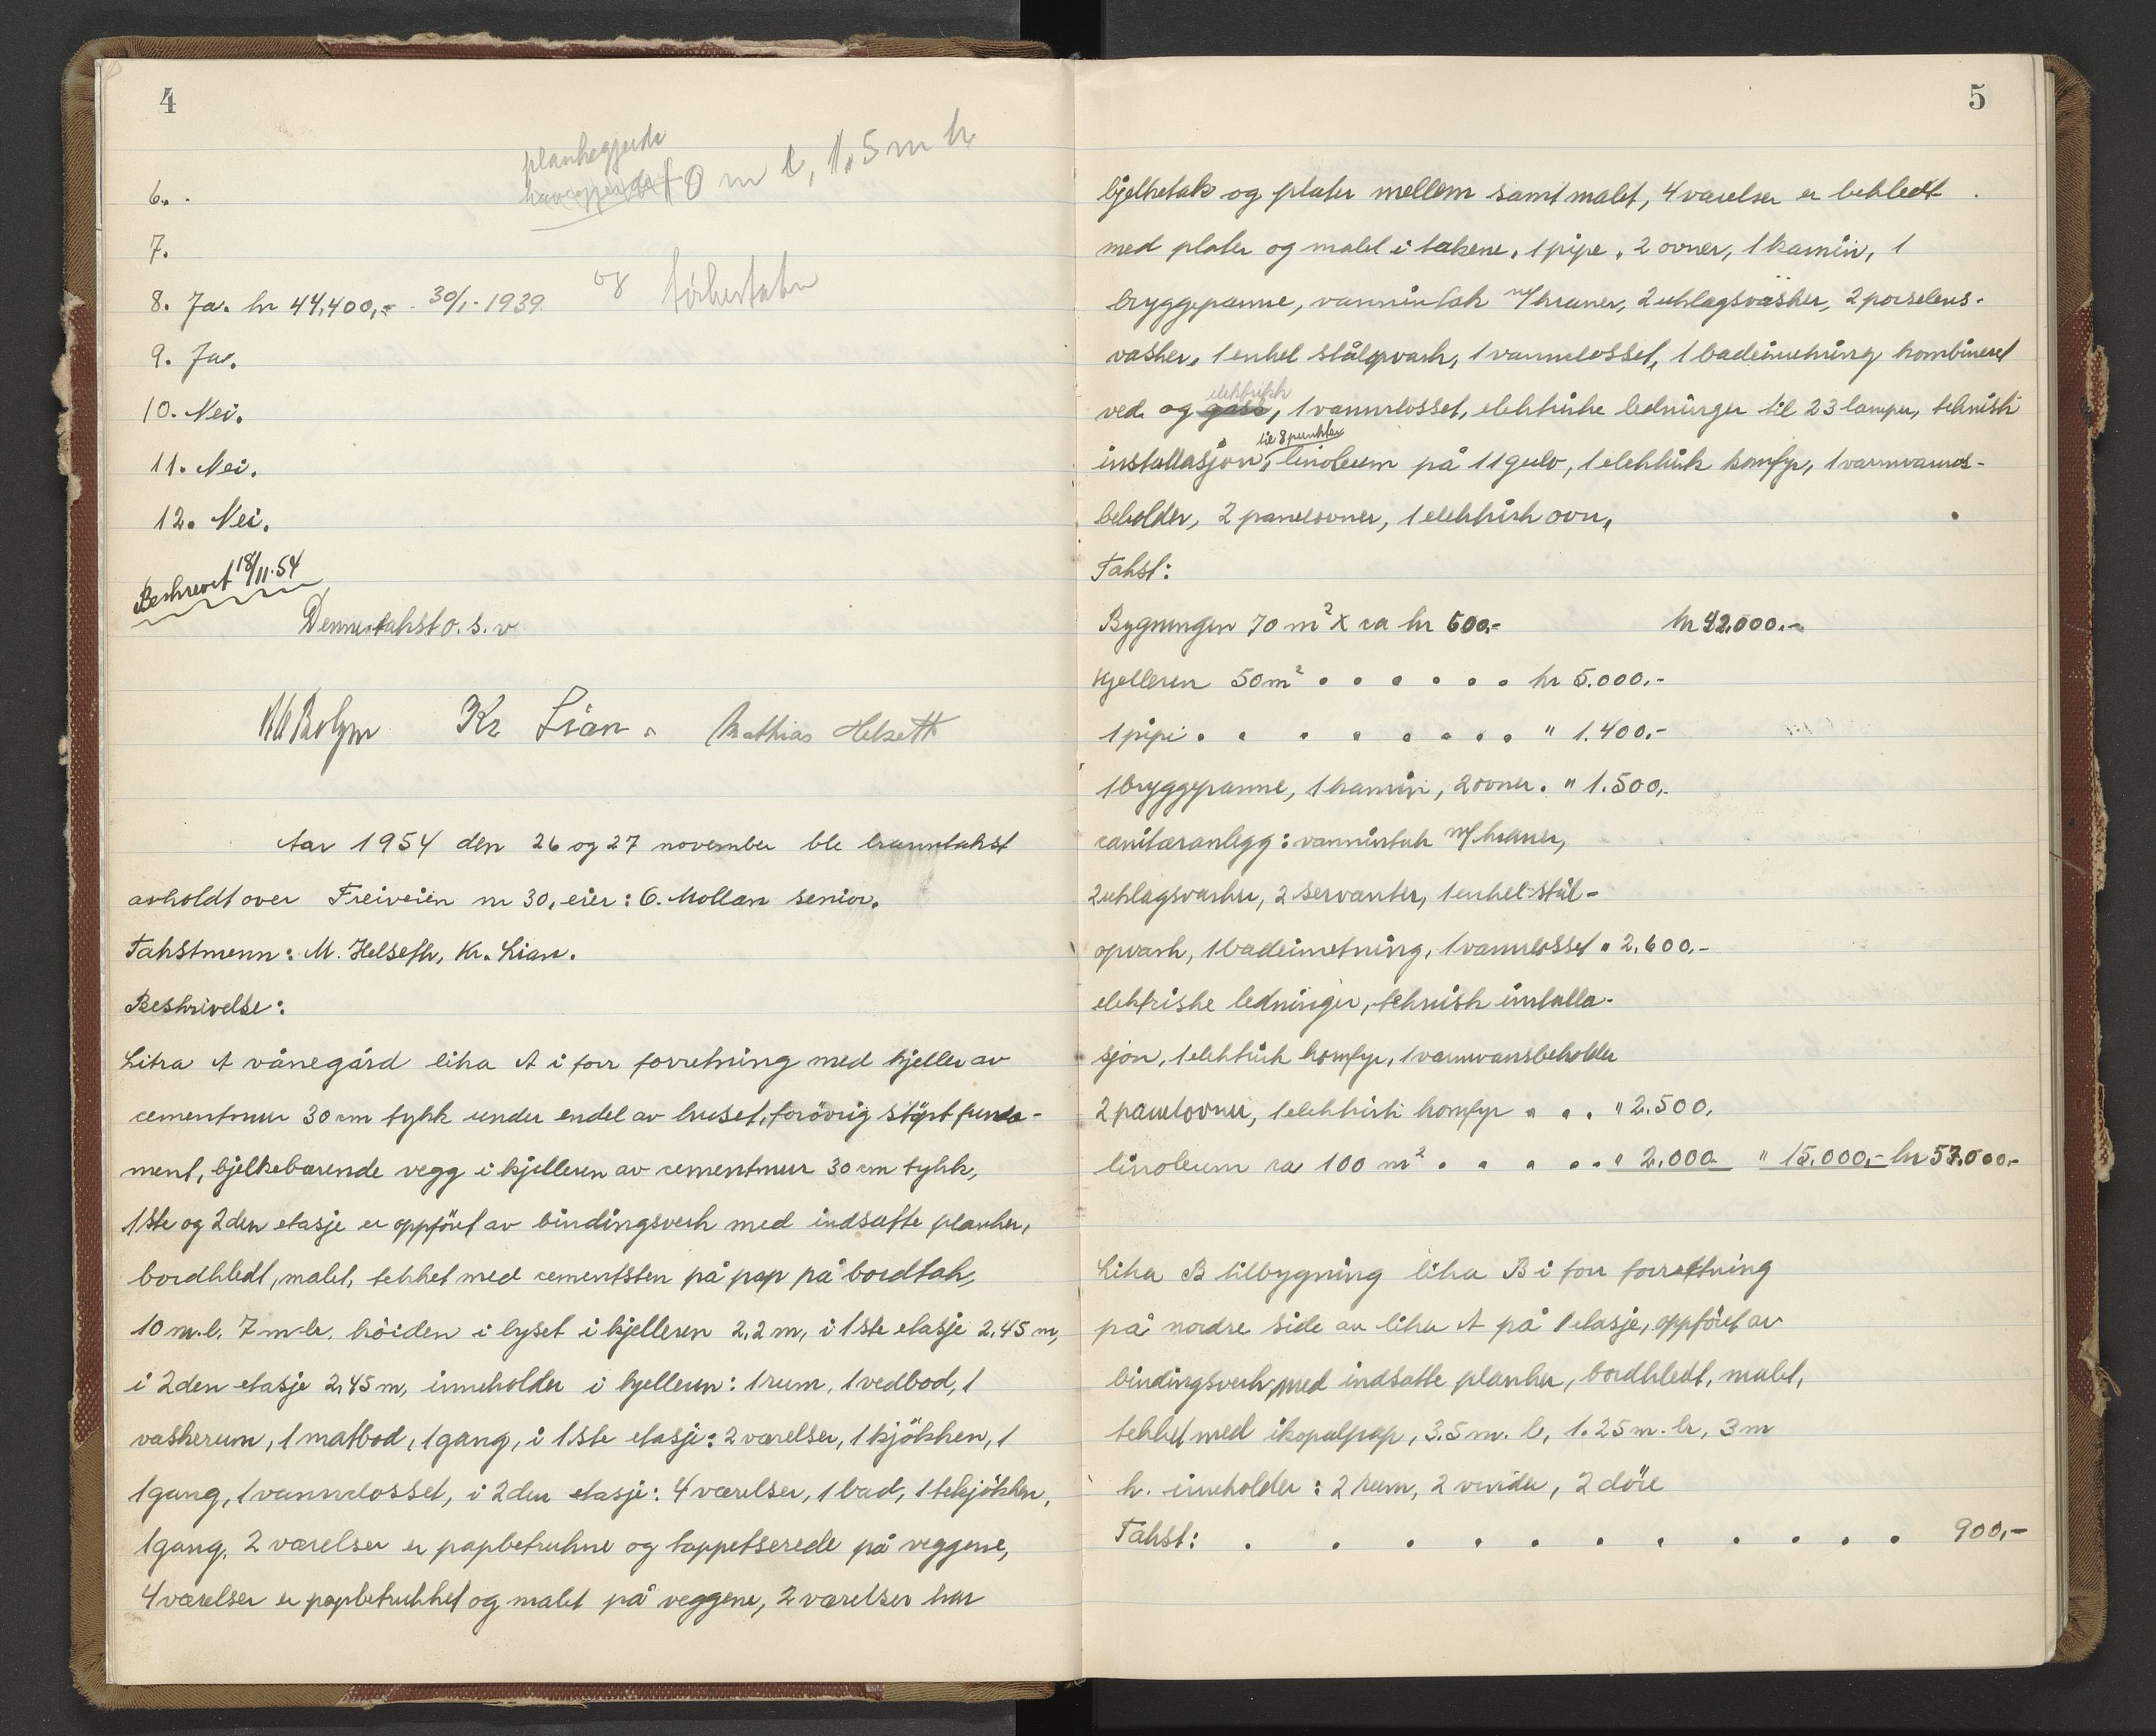 4
plankegjerde
10 m l, 1,5 m h
6.
7.
og tørkestativ
8. Ja. kr 44,400,- 30/1-1939.
9. Ja.
10. Nei.
11. Nei.
12. Nei.
Beskrevet 18/11-54
Denne takst o. s. v.
Kr Lian. Mathias Helseth
Aar 1954 den 26 og 27 november ble branntakst
avholdt over Freiveien nr 30, eier: O. Mollan senior.
Takstmenn: M. Helseth, Kr. Lian.
Beskrivelse:
Litra A vånegård litra A i forr forretning med kjeller av
cementmur 30 cm tykk under endel av huset, forövrig stöpt funda-
ment, bjelkebærende vegg i kjelleren av cementmur 30 cm tykk,
1ste og 2den etasje er oppfört av bindingsverk med indsatte planker,
bordkledt, malet, tekket med cementsten på pap på bordtak,
10 m. l. 7 m br. höiden i lyset i kjelleren 2,2 m, i 1ste etasje 2,45 m,
i 2den etasje 2,45 m, inneholder i kjelleren: 1 rum, 1 vedbod, 1
vaskerum, 1 matbod, 1 gang, i 1ste etasje: 2 værelser, 1 kjökken, 1
1 gang, 1 vannclosset, i 2den etasje: 4 værelser, 1 bad, 1 tekjökken,
1 gang, 2 værelser er papbetrukne og tappetserede på veggene,
4 værelser er papbetrukket og malet på veggene, 2 værelser har
5
bjelketak og plater mellem samt malet, 4 værelser er bekledt
med plater og malet i takene, 1 pipe, 2 ovner, 1 kamin, 1
bryggepanne, vanninntak m/kraner, 2 utslagsvasker, 2 porselens-
vasker, 1 enkel stålopvask, 1 vannclosset, 1 badeinnretning kombineret
elektrisk
ved og gass, 1 vannclosset, elektriske ledninger til 23 lamper, teknisk
til 8 punkter
installasjon, linoleum på 11 gulv, 1 elektrisk komfyr, 1 varmvanns-
beholder, 2 panelovner, 1 elektrisk ovn,
Takst:
Bygningen 70 m² x ca kr 600.- kr 42.000.-
Kjelleren 50 m² . . . . . . kr 5.000.-
1 pipe . . . . . . . . " 1.400.-
1 bryggepanne, 1 kamin, 2 ovner. " 1.500.-
sanitæranlegg: vanninntak m/kraner,
2 utslagsvasker, 2 servanter, 1 enkel stål-
opvask, 1 badeinnretning, 1 vannclosset " 2.600.-
elektriske ledninger, teknisk installa-
sjon, 1 elektrisk komfyr, 1 varmvansbeholder
2 panelovner, 1 elektrisk komfyr . . . " 2.500.
linoleum ca 100 m² . . . . . . " 2.000 " 15.000,- kr 57.000.-
Litra B tilbygning litra B i forr forretning
på nordre side av litra A på 1 etasje, oppfört av
bindingsverk, med indsatte planker, bordkledt, malet,
tekket med ikopalpap, 3.5 m. l, 1.25 m. br, 3 m
h. inneholder: 2 rum, 2 vinduer, 2 döre
Takst: . . . . . . . . . . . 900,-